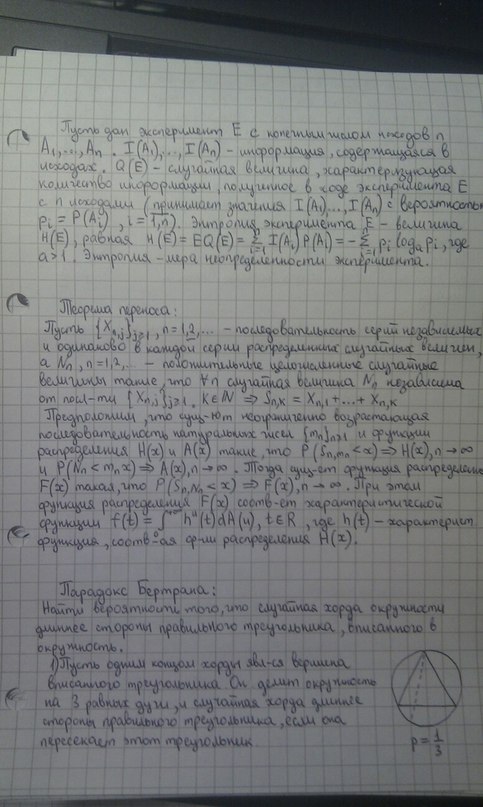 Пусть дан эксперимент E с конечным числом исходов n
A₁,..., Aₙ. I(A₁),..., I(Aₙ) - информация, содержащаяся в
исходах. Q(E) - случайная величина, характеризующая
количество информации, полученное в ходе эксперимента E
с n исходами (принимает значения I(A₁)..., I(Aₙ) с вероятностью
pᵢ = P(Aᵢ), i = 1,n). Энтропия эксперимента E - величина
H(E), равная H(E) = EQ(E) = Σᵢ₌₁ⁿ I(Aᵢ)P(Aᵢ) = -Σᵢ₌₁ⁿ pᵢ logₐ pᵢ, где
a > 1. Энтропия - мера неопределенности эксперимента.
Теорема переноса:
Пусть {Xₙ,ⱼ}ⱼ≥₁, n = 1,2,... - последовательность серий независимых
и одинаково в каждой серии распределенных случайных величин,
а Nₙ, n = 1,2,... - положительные целочисленные случайные
величины такие, что ∀n случайная величина Nₙ независима
от посл-ти {Xₙ,ⱼ}ⱼ≥₁. k∈N ⇒ Sₙ,ₖ = Xₙ,₁ + ... + Xₙ,ₖ
Предположим, что сущ-ют неограниченно возрастающая
последовательность натуральных чисел {mₙ}ₙ≥₁ и функции
распределения H(x) и A(x) такие, что P(Sₙ,ₘₙ < x) ⇒ H(x), n → ∞
и P(Nₙ < mₙx) ⇒ A(x), n → ∞. Тогда сущ-ет функция распределен
F(x) такая, что P(Sₙ,Nₙ < x) ⇒ F(x), n → ∞. При этом
функция распределения F(x) соотв-ет характеристической
функции f(t) = ∫₀^∞ hᵘ(t)dA(u), t∈R, где h(t) - характерист.
функция, соотв-ая ф-ии распределения H(x).
Парадокс Бертрана:
Найти вероятности того, что случайная хорда окружности
длиннее стороны правильного треугольника, вписанного в
окружность.
1) Пусть одним концом хорды явл-ся вершина
вписанного треугольника. Он делит окружность
на 3 равных дуги, и случайная хорда длиннее
стороны правильного треугольника, если она
пересекает этот треугольник.
p = 1/3